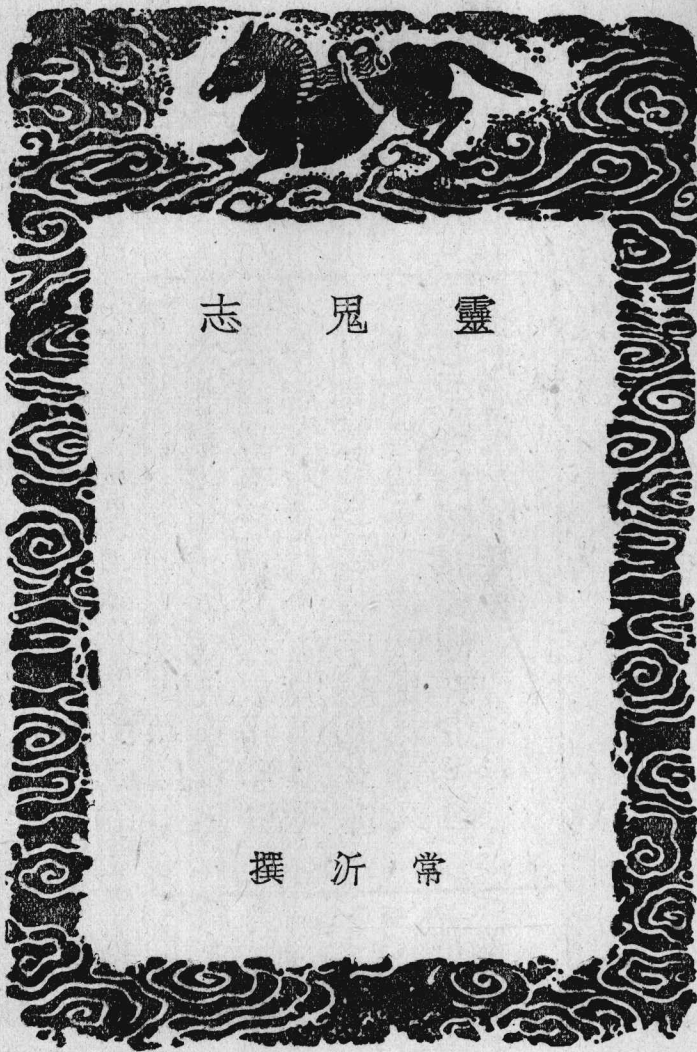 靈鬼志
常沂撰